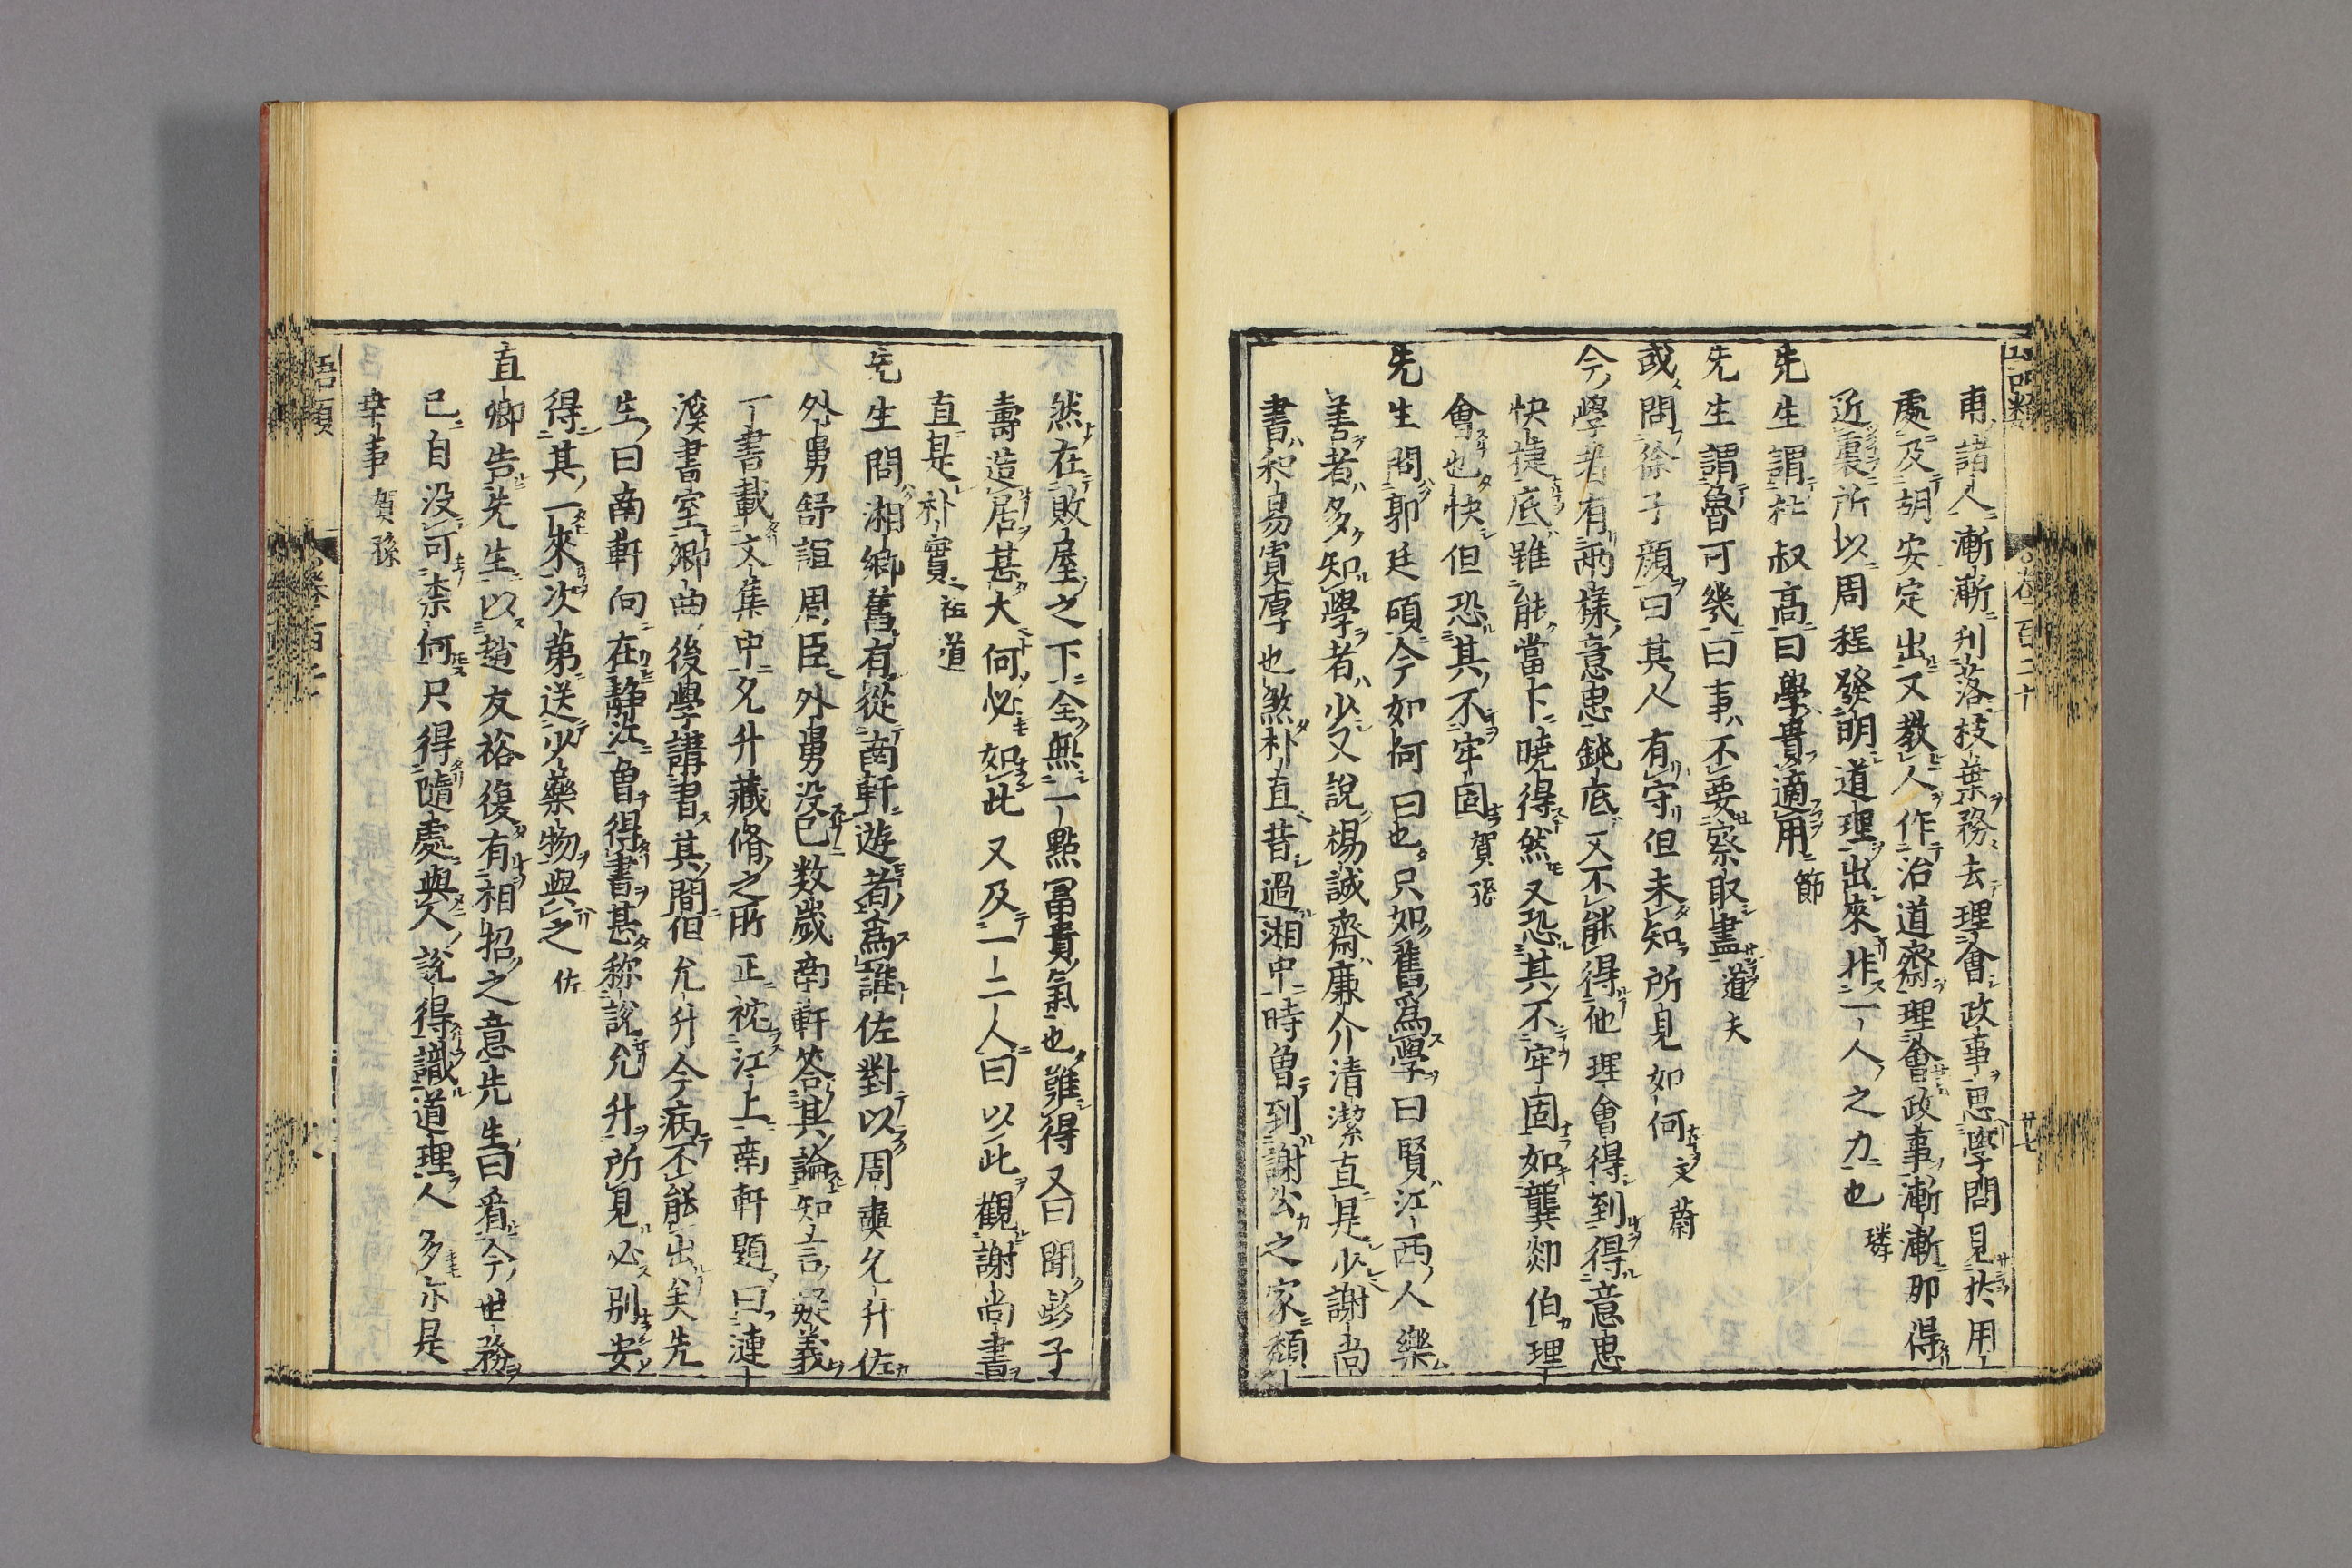 甫諸人漸漸刋落枝葉務去理會政事思學問見於用
處及胡安定出又教人作治道齋理會政事漸漸那得
近裏所以周程發明道理出來非一人之力也 璘
先生謂杜叔高曰學貴適用 節
先生謂魯可幾曰事不要察取盡 道夫
或問徐子顔曰其人有守但未知所見如何 文蔚
今學者有兩樣意思鈍底又不能得他理會得到得意思
快捷底雖能當下曉得然又恐其不牢固如龔郯伯理
會也快但恐其不牢固 賀孫
先生問郭廷碩今如何曰也只如舊爲學曰賢江西人樂
善者多知學者少又說楊誠齋廉介清潔直是少謝尚
書和易寛厚也煞朴直昔過湘中時曽到謝公之家頽
語類 卷一百二十 廿七
然在敗屋之下全無一點冨貴氣也難得又曰聞彭子
壽造居甚大何必如此又及一二人曰以此觀謝尚書
直是朴實 祖道
先生問湘鄉舊有從南軒遊者爲誰佐對以周奭允升佐
外舅舒誼周臣外舅没已数歲南軒答其論知言疑義
一書載文集中允升藏脩之所正枕江上南軒題曰漣
溪書室鄉曲後學講書其間但允升今病不能出矣先
生曰南軒向在静江曽得書甚称說允升所見必别安
得其一來次第送少藥物與之 佐
直卿告先生以趙友裕復有相招之意先生曰看今世務
已自没可柰何只得隨處與人說得識道理人多亦是
幸事 賀孫
語類 卷百二十